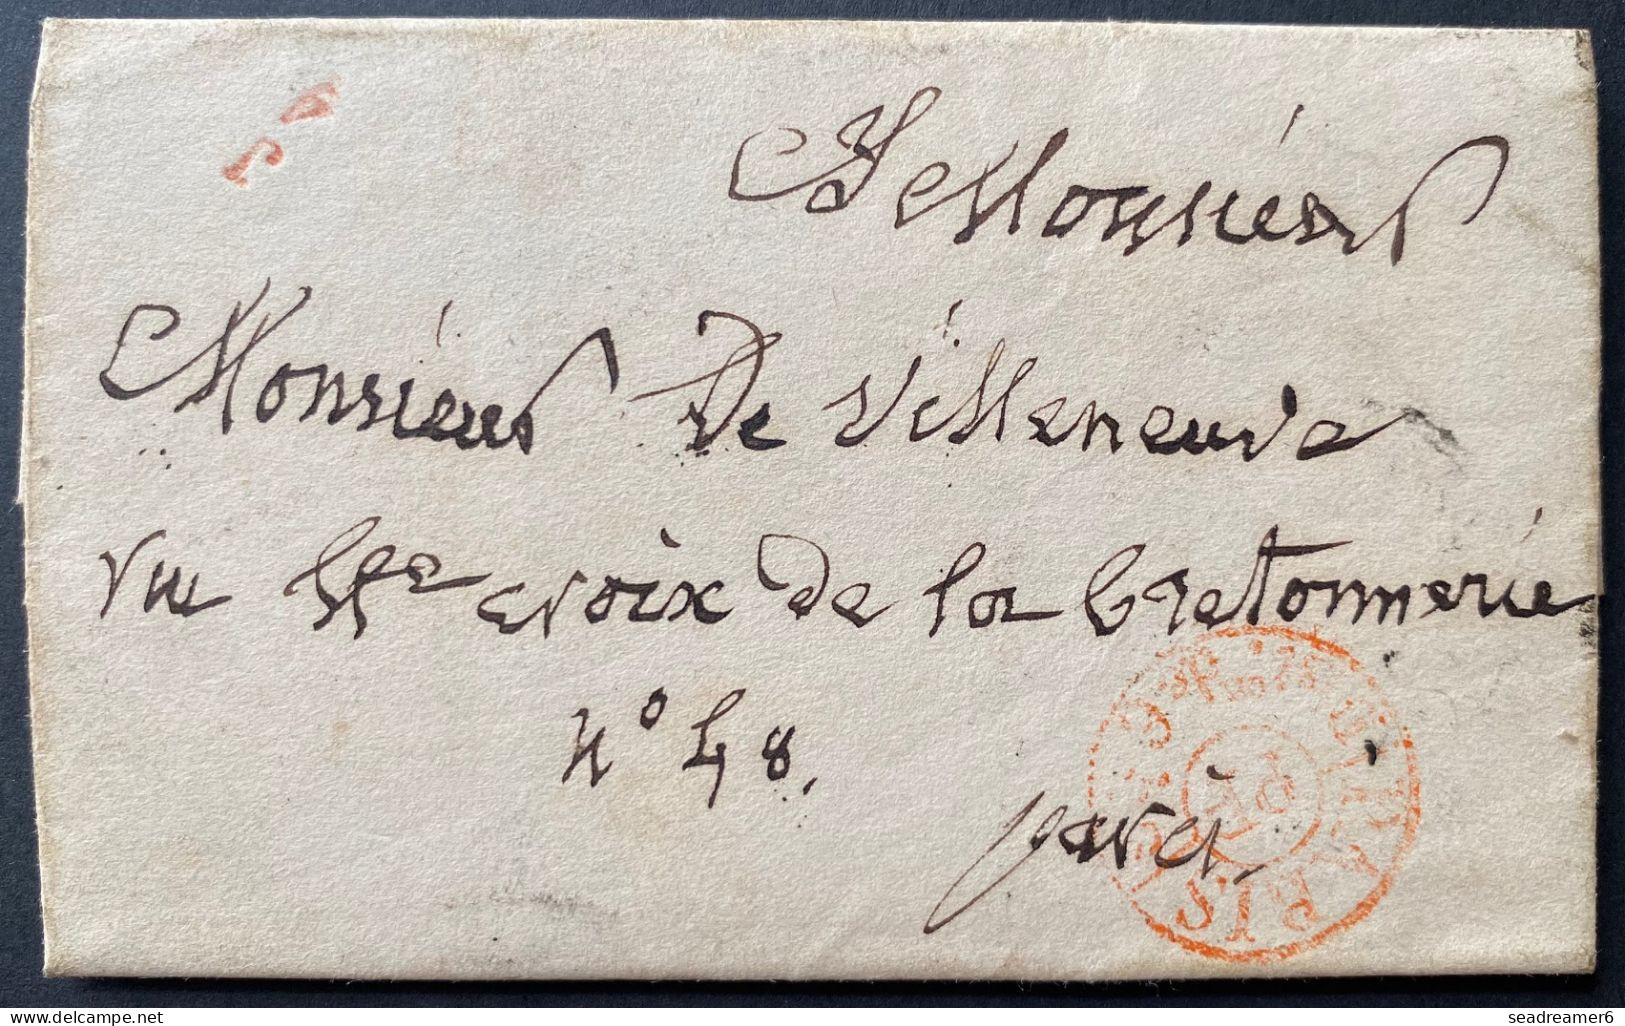 A Monsieur
Monsieur De villeneuve
rue Ste croix de la bretonnerie
n° 48.
paris
PARIS
delcampe.net
seadreamer6